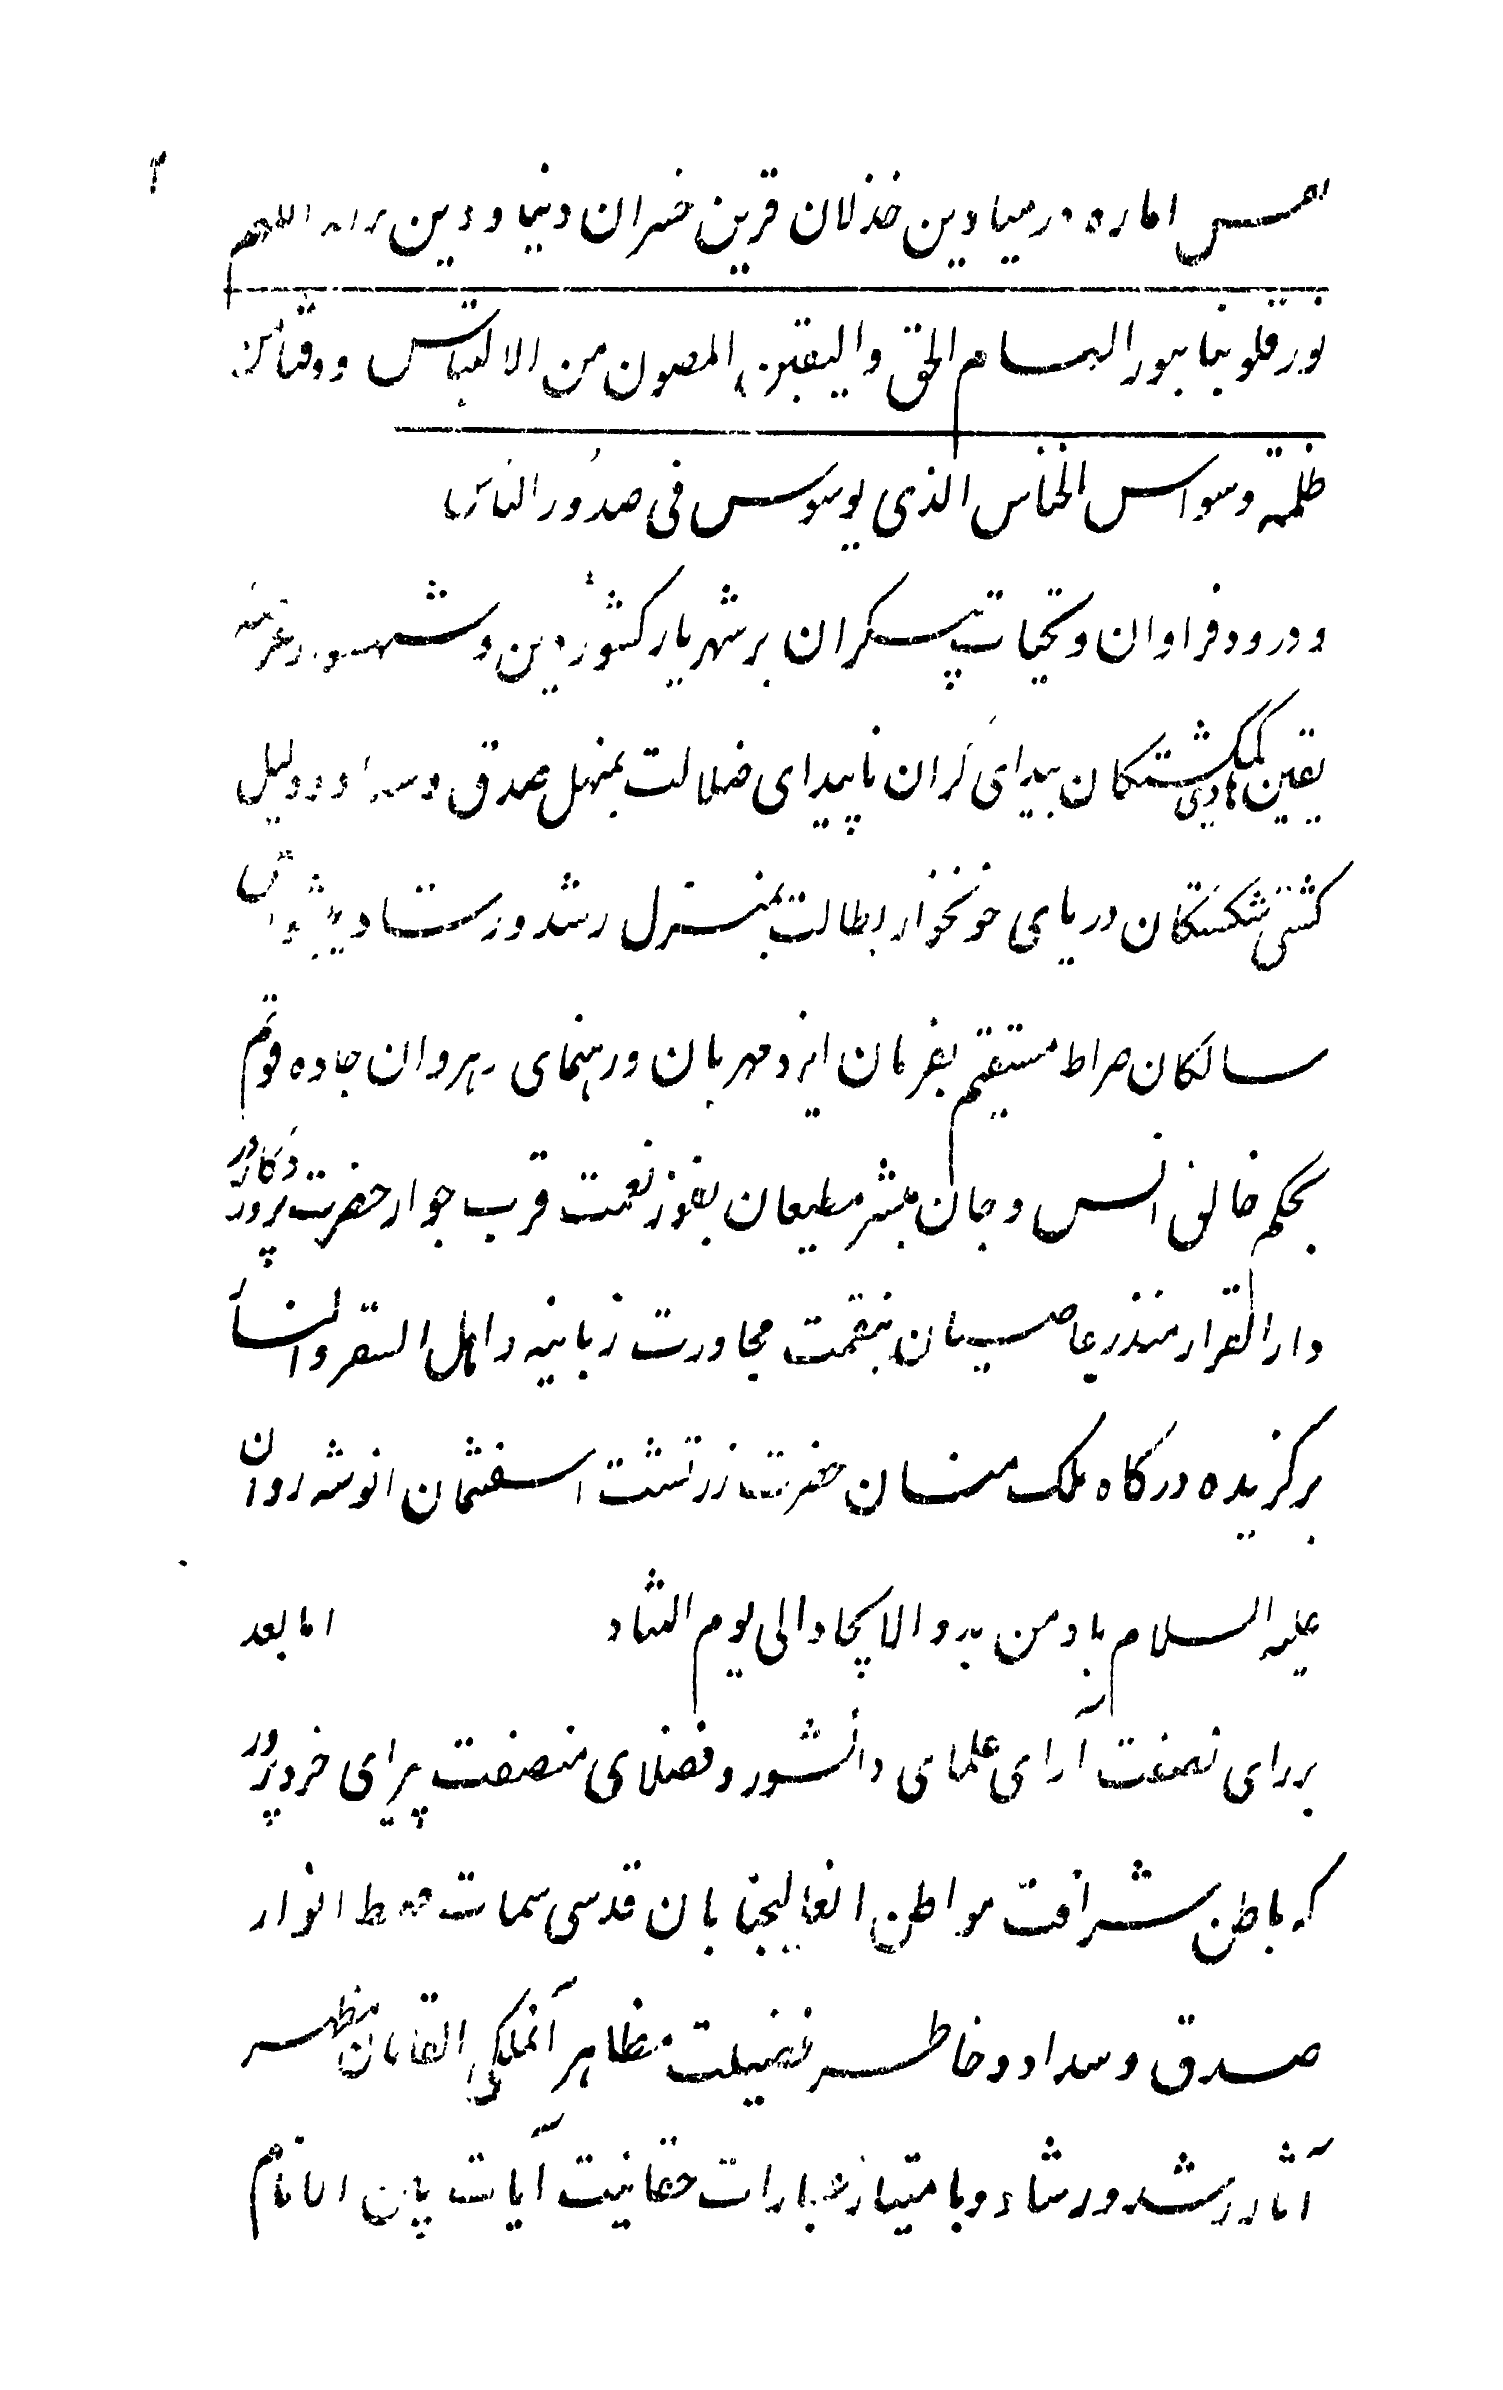 ۳
اماره در میادین خذلان قرین خسران دنیا و دین اللهم
نور قلوبنا بنور الهام الحق و الیقین المصون من الالتباس و وقنا من
ظلمه وسواس الخناس الذی یوسوس فی صدور الناس
و درود فراوان و تحیات بیکران بر شهریار کشور دین و عرصه
یقین هادی گمگشتگان بیدای کران ناپیدای ضلالت بمنهل صدق و سداد و دلیل
کشتی شکستگان دریای خونخوار بطالت بمنزل رشد و رشاد پیشوای
سالکان صراط مستقیم بفرمان ایزد مهربان و رهنمای رهروان جاده قویم
بحکم خالق انس و جان مبشر مطیعان بفوز نعمت قرب جوار حضرت پروردکار در
دار القرار منذر عاصیان بنقمت مجاورت زبانیه و اهل السقر و النار
برکزیده درکاه ملک منان حضرت زرتشت اسفنتمان انوشه روان
علیه السلام باد من بدو الایجاد الی یوم التناد اما بعد
بر رای نصفت آرای علمای دانشور و فضلای منصفت پیرای خرد پرور
که باطن شرافت مواطن انعالیجنابان قدسی سمات مهبط انوار
صدق و سداد و خاطر فضیلت مظاهر آنملکی القابان مظهر
آثار رشد و رشاد و بامتیاز عبارات حقانیت آیات